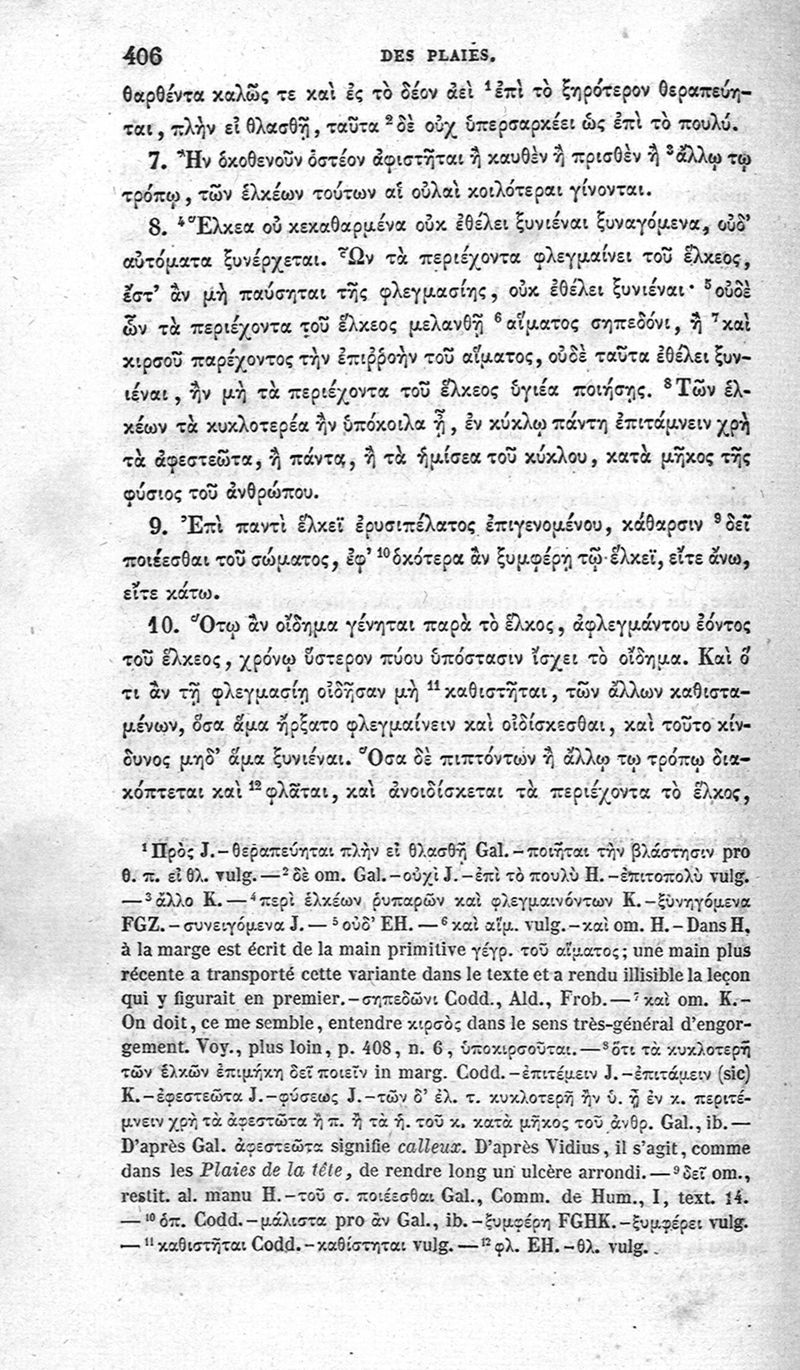 406 DES PLAIES.
θαρθέντα καλῶς τε καὶ ἐς τὸ δέον ἀεὶ ¹ἐπὶ τὸ ξηρότερον θεραπεύη-
ται, πλὴν εἰ θλασθῇ, ταῦτα ²δὲ οὐχ ὑπερσαρκέει ὡς ἐπὶ τὸ πουλύ.
7. Ἢν ὁκοθενοῦν ὀστέον ἀφιστῆται ἢ καυθὲν ἢ πρισθὲν ἢ ³ἄλλῳ τῳ
τρόπῳ, τῶν ἑλκέων τούτων αἱ οὐλαὶ κοιλότεραι γίνονται.
8. ⁴Ἕλκεα οὐ κεκαθαρμένα οὐκ ἐθέλει ξυνιέναι ξυναγόμενα, οὐδ’
αὐτόματα ξυνέρχεται. Ὧν τὰ περιέχοντα φλεγμαίνει τοῦ ἕλκεος,
ἔστ’ ἂν μὴ παύσηται τῆς φλεγμασίης, οὐκ ἐθέλει ξυνιέναι· ⁵οὐδὲ
ὧν τὰ περιέχοντα τοῦ ἕλκεος μελανθῇ ⁶αἵματος σηπεδόνι, ἢ ⁷καὶ
κιρσοῦ παρέχοντος τὴν ἐπιῤῥοὴν τοῦ αἵματος, οὐδὲ ταῦτα ἐθέλει ξυν-
ιέναι, ἢν μὴ τὰ περιέχοντα τοῦ ἕλκεος ὑγιέα ποιήσῃς. ⁸Τῶν ἑλ-
κέων τὰ κυκλοτερέα ἢν ὑπόκοιλα ᾖ, ἐν κύκλῳ πάντη ἐπιτάμνειν χρὴ
τὰ ἀφεστεῶτα, ἢ πάντα, ἢ τὰ ἡμίσεα τοῦ κύκλου, κατὰ μῆκος τῆς
φύσιος τοῦ ἀνθρώπου.
9. Ἐπὶ παντὶ ἕλκεϊ ἐρυσιπέλατος ἐπιγενομένου, κάθαρσιν ⁹δεῖ
ποιέεσθαι τοῦ σώματος, ἐφ’ ¹⁰ὁκότερα ἂν ξυμφέρῃ τῷ ἕλκεϊ, εἴτε ἄνω,
εἴτε κάτω.
10. Ὅτῳ ἂν οἴδημα γένηται παρὰ τὸ ἕλκος, ἀφλεγμάντου ἐόντος
τοῦ ἕλκεος, χρόνῳ ὕστερον πύου ὑπόστασιν ἴσχει τὸ οἴδημα. Καὶ ὅ
τι ἂν τῇ φλεγμασίῃ οἰδῆσαν μὴ ¹¹καθιστῆται, τῶν ἄλλων καθιστα-
μένων, ὅσα ἅμα ἤρξατο φλεγμαίνειν καὶ οἰδίσκεσθαι, καὶ τοῦτο κίν-
δυνος μηδ’ ἅμα ξυνιέναι. Ὅσα δὲ πιπτόντων ἢ ἄλλῳ τῳ τρόπῳ δια-
κόπτεται καὶ ¹²φλᾶται, καὶ ἀνοιδίσκεται τὰ περιέχοντα τὸ ἕλκος,
¹Πρὸς J. – θεραπεύηται πλὴν εἰ θλασθῇ Gal. – ποιῆται τὴν βλάστησιν pro
θ. π. εἰ θλ. vulg. — ²δὲ om. Gal. – οὐχὶ J. – ἐπὶ τὸ πουλὺ H. – ἐπιτοπολὺ vulg.
— ³ἄλλο K. — ⁴περὶ ἑλκέων ῥυπαρῶν καὶ φλεγμαινόντων K. – ξυνηγόμενα
FGZ. – συνειγόμενα J. — ⁵οὐδ’ EH. — ⁶καὶ αἵμ. vulg. – καὶ om. H. – Dans H,
à la marge est écrit de la main primitive γέγρ. τοῦ αἵματος; une main plus
récente a transporté cette variante dans le texte et a rendu illisible la leçon
qui y figurait en premier. – σηπεδῶνι Codd., Ald., Frob. — ⁷καὶ om. K. –
On doit, ce me semble, entendre κιρσὸς dans le sens très-général d’engor-
gement. Voy., plus loin, p. 408, n. 6, ὑποκιρσοῦται. — ⁸ὅτι τὰ κυκλοτερῆ
τῶν ἑλκῶν ἐπιμήκη δεῖ ποιεῖν in marg. Codd. – ἐπιτέμειν J. – ἐπιτάμειν (sic)
K. – ἐφεστεῶτα J. – φύσεως J. – τῶν δ’ ἑλ. τ. κυκλοτερῆ ἢν ὑ. ᾖ ἐν κ. περιτέ-
μνειν χρὴ τὰ ἀφεστῶτα ἢ π. ἢ τὰ ἡ. τοῦ κ. κατὰ μῆκος τοῦ ἀνθρ. Gal., ib. —
D’après Gal. ἀφεστεῶτα signifie calleux. D’après Vidius, il s’agit, comme
dans les Plaies de la tête, de rendre long un ulcère arrondi. — ⁹δεῖ om.,
restit. al. manu H. – τοῦ σ. ποιέεσθαι Gal., Comm. de Hum., I, text. 14.
— ¹⁰ὁπ. Codd. – μάλιστα pro ἂν Gal., ib. – ξυμφέρῃ FGHK. – ξυμφέρει vulg.
— ¹¹καθιστῆται Codd. – καθίστηται vulg. — ¹²φλ. EH. – θλ. vulg.